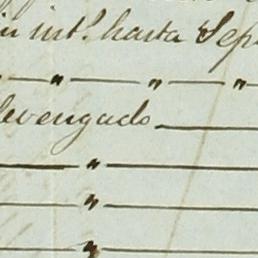 in int.s hasta Sep
— " — " — "
devengado —
— " —
— " —
— " —